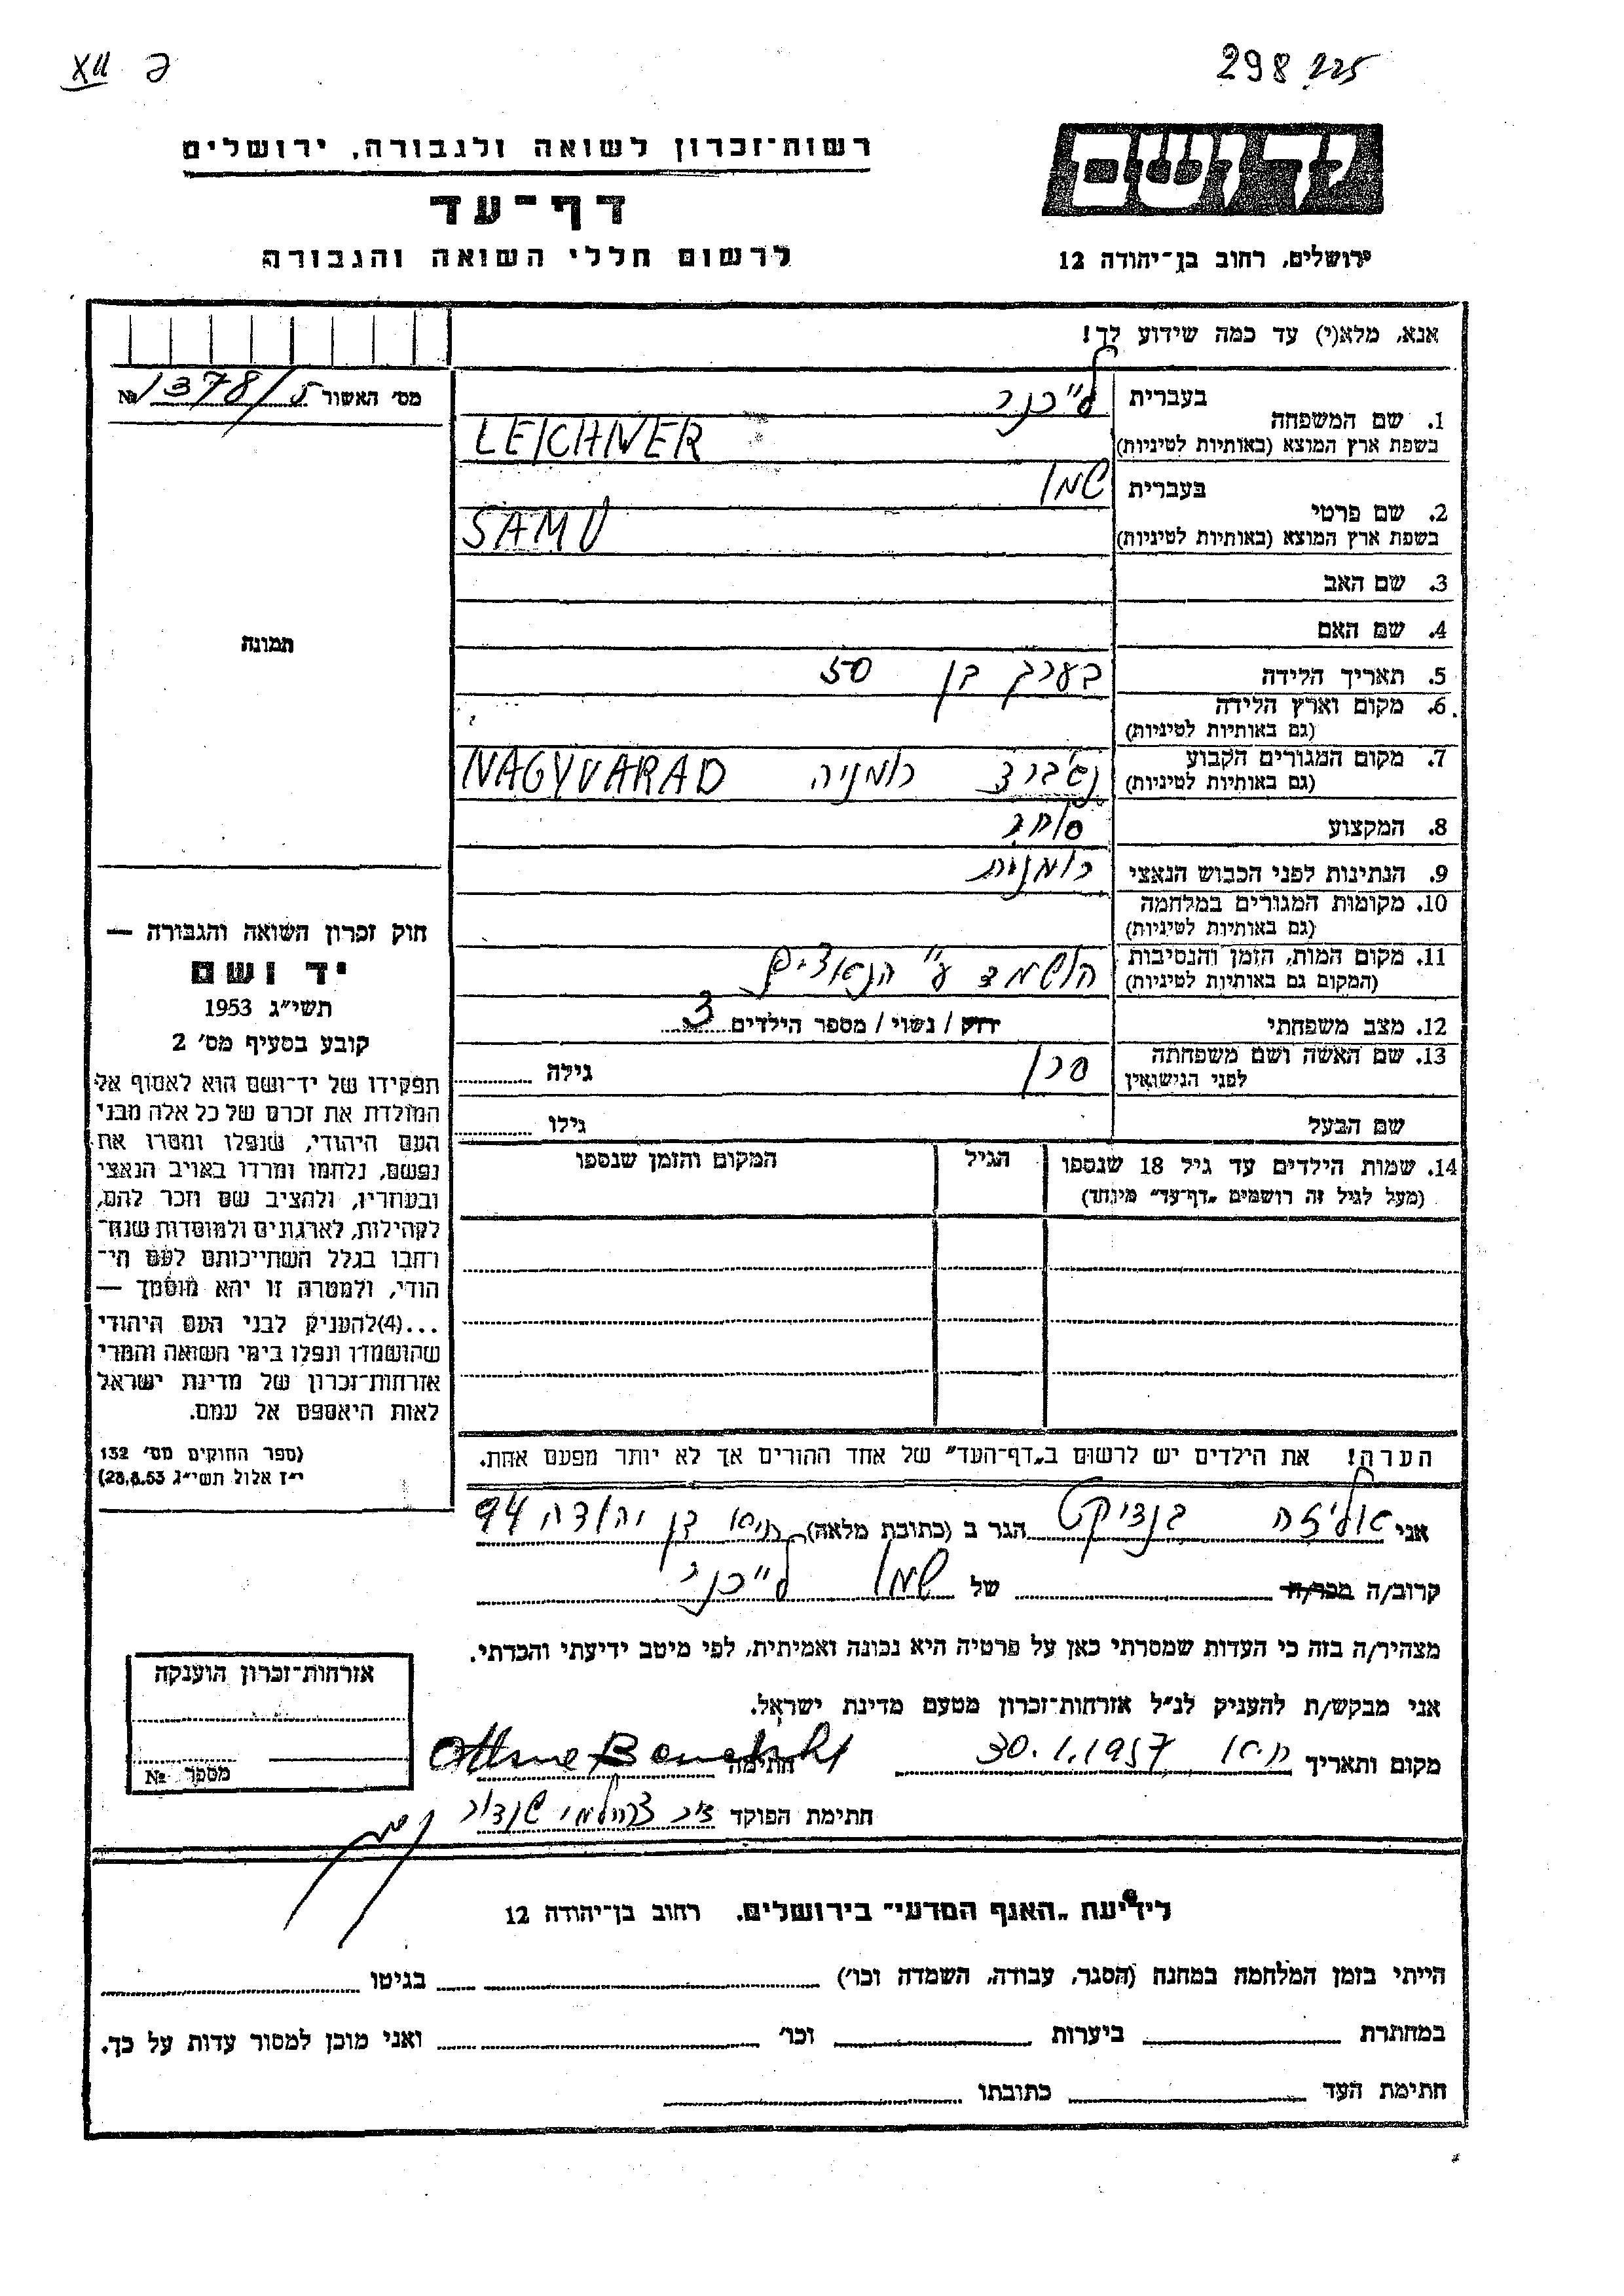 298 225
XII
רשות־זכרון לשואה ולגבורה, ירושלים
דף־עד
לרשום חללי השואה והגבורה
יד ושם
ירושלים, רחוב בן־יהודה 12
אנא, מלא(י) עד כמה שידוע לך!
מס׳ האשור 1378/5 №
1. שם המשפחה
בעברית לייכנר
בשפת ארץ המוצא (באותיות לטיניות) LEICHNER
2. שם פרטי
בעברית שמו
בשפת ארץ המוצא (באותיות לטיניות) SAMU
3. שם האב
4. שם האם
5. תאריך הלידה בערך בן 50
6. מקום וארץ הלידה
(גם באותיות לטיניות)
7. מקום המגורים הקבוע
(גם באותיות לטיניות) רומניה NAGYVARAD
8. המקצוע סוחר
9. הנתינות לפני הכבוש הנאצי רומנית
10. מקומות המגורים במלחמה
(גם באותיות לטיניות)
11. מקום המות, הזמן והנסיבות
(המקום גם באותיות לטיניות) הושמד ע״י הנאצים
12. מצב משפחתי רווק / נשוי / מספר הילדים 3
13. שם האשה ושם משפחתה
לפני הנישואין גילה
שם הבעל גילו
14. שמות הילדים עד גיל 18 שנספו
(מעל לגיל זה רושמים „דף־עד״ מיוחד)
הגיל
המקום והזמן שנספו
הערה! את הילדים יש לרשום ב„דף־העד״ של אחד ההורים אך לא יותר מפעם אחת.
תמונה
חוק זכרון השואה והגבורה —
יד ושם
תשי״ג 1953
קובע בסעיף מס׳ 2
תפקידו של יד־ושם הוא לאסוף אל
המולדת את זכרם של כל אלה מבני
העם היהודי, שנפלו ומסרו את
נפשם, נלחמו ומרדו באויב הנאצי
ובעוזריו, ולהציב שם וזכר להם,
לקהילות, לארגונים ולמוסדות שנח־
רבו בגלל השתייכותם לעם הי־
הודי, ולמטרה זו יהא מוסמך —
...(4)להעניק לבני העם היהודי
שהושמדו ונפלו בימי השואה והמרי
אזרחות־זכרון של מדינת ישראל
לאות היאספם אל עמם.
(ספר החוקים מס׳ 132
י״ז אלול תשי״ג 28.8.53)
אני אליזה בנדיקט הגר ב (כתובת מלאה) חיפה בן יהודה 94
קרוב/ה מכר/ה של שמו לייכנר
מצהיר/ה בזה כי העדות שמסרתי כאן על פרטיה היא נכונה ואמיתית, לפי מיטב ידיעתי והכרתי.
אני מבקש/ת להעניק לנ״ל אזרחות־זכרון מטעם מדינת ישראל.
מקום ותאריך חיפה 30.1.1957 חתימה
חתימת הפוקד
אזרחות־זכרון הוענקה
מספר №
לידיעת „האגף המדעי״ בירושלים, רחוב בן־יהודה 12
הייתי בזמן המלחמה במחנה (הסגר, עבודה, השמדה וכו׳) בגיטו
במחתרת ביערות וכו׳ ואני מוכן למסור עדות על כך.
חתימת העד כתובתו